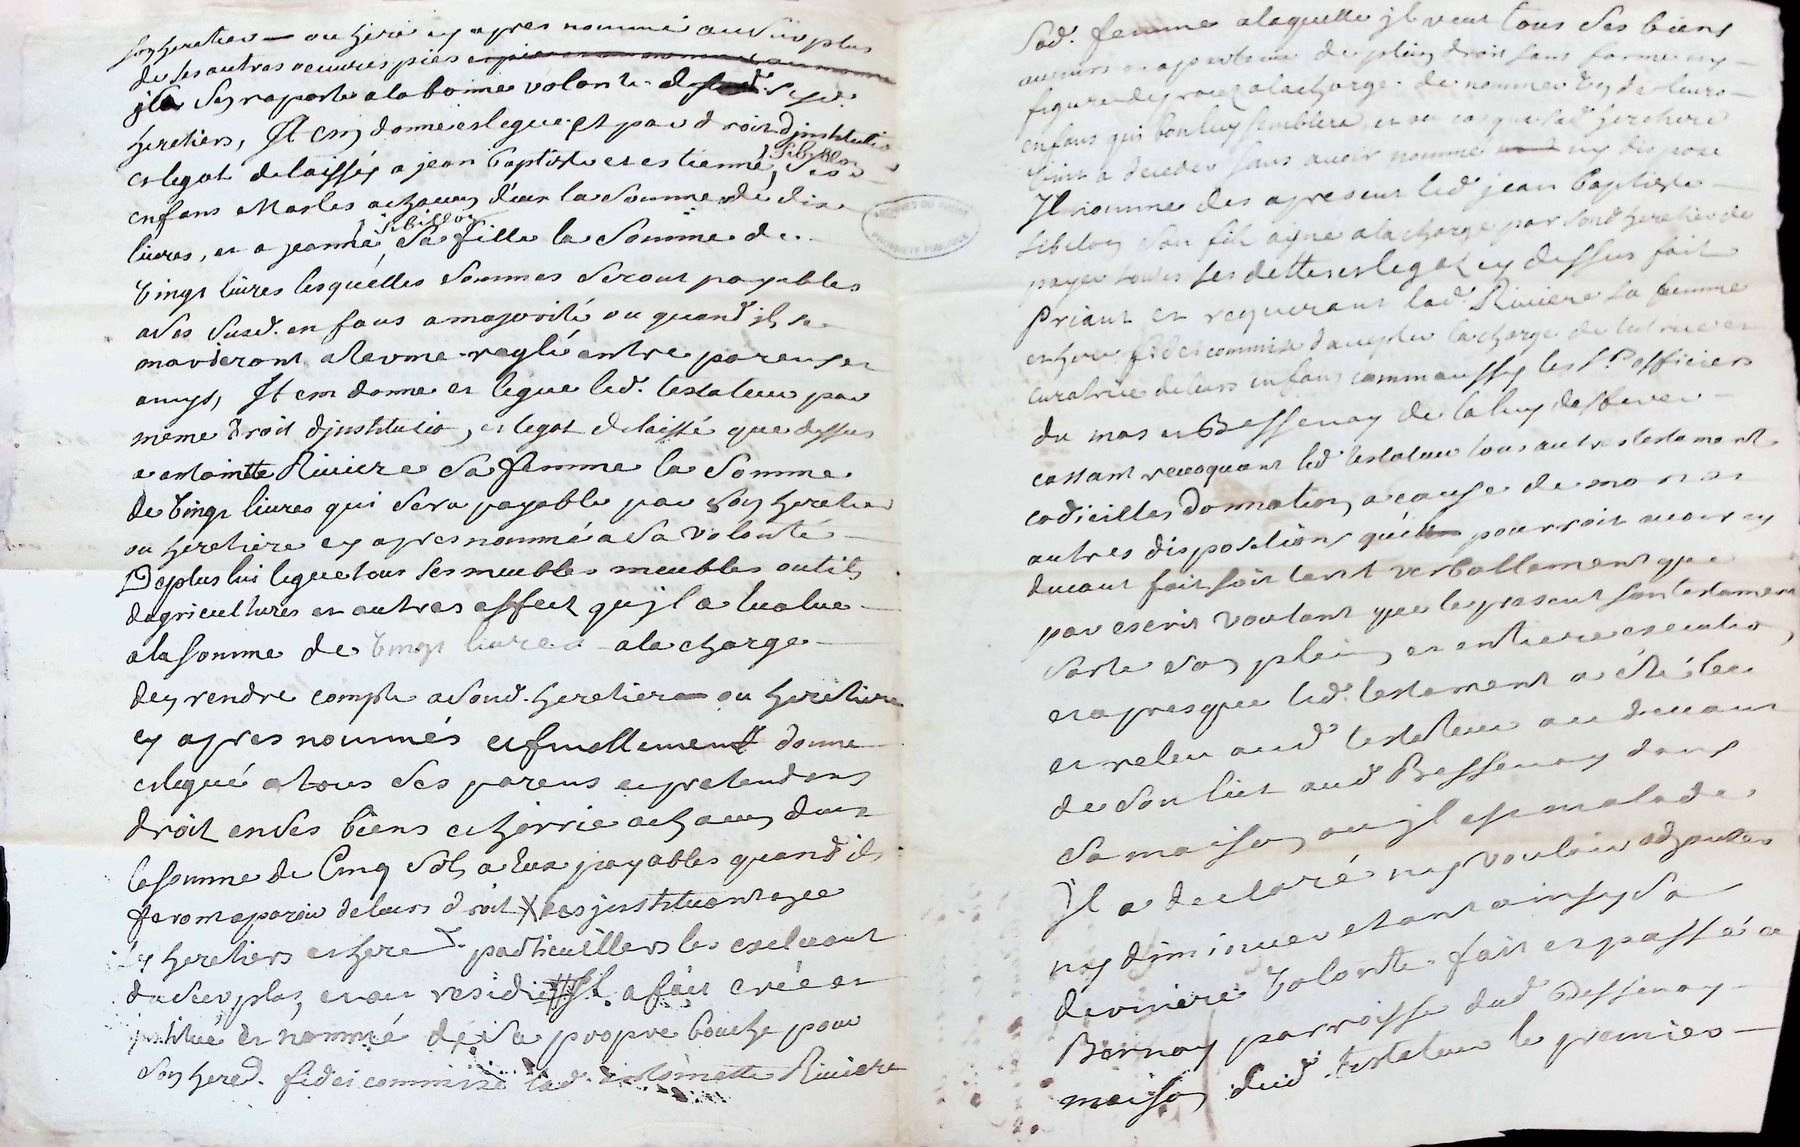 son heretier ou here cy apres nommé au surplus
de ses autres oeuvres pies
il sen raporte a la bonne volonté de sesd.
heretiers, Item donne et legue et par droit dinstitution
et legat delaissés a jean baptiste et estienne sibillon ses
enfans masles a chacun d'eux la somme de dix
livres, et a jeanne sibillon sa fille la somme de
vingt livres lesquélles sommes seront payables
a ses susd. enfans a majorité ou quand ils se
marieront a terme reglé entre parens et
amys, Item donne et legue led. testateur par
meme droit d'institution, et legat delaissé que dessus
a antoinette Riviere sa femme la somme
de vingt livres qui sera payable par son heretier
ou heretiere cy apres nommé a sa volonté
De plus lui legue tous ses meubles meublans outils
dagricultures et autres effect quil a evalué
a la somme de vingt livres a la charge
den rendre compte a sond. heretier ou heretiere
cy apres nommés et finallement donne
et legué a tous ses parens et pretendans
droit en ses biens et hoirrie a chacun deux
la somme de Cinq sols a eux payables quand ils
feront aparoir de leurs droit les instituant
heretiers et here particulliers les excluant
du surplus, et au residu Il a fait créé et
institué et nommé de sa propre bouche pour
son hered. fidei commisse lad. antoinette Riviere
sad. femme a laquelle il veut tous ses biens
avenir et apartenir de plein droit sans forme ny
figure de procez a la charge de nommer un de leurs
enfans qui bon luy semblera, et au cas que lad. heretiere
vint a deceder sans avoir nommé ny disposé
Il nomme des apresent led. jean baptiste
sibillon son fils ayné a la charge par sond heretier de
payer toutes ses dettes et legat cy dessus fait
Priant et requerant lad. Riviere sa femme
et here. fidei commise daccepter la charge de tutrice et
curatrice de leurs enfans comme aussy les Srs officiers
du mas et Bessenay de la luy deferer
cassant revoquant led. testateur tous autres testament
codicilles donnation a cause de mort et
autres dispositions qu'il pourroit avoir cy
devant fait soit tant verballement que
par escrit voulant que le present son testament
sorte son plein, et entiere execution,
et apres que led. testament a été leu
et releu aud. testateur au devant
de son lict aud Bessenay dans
sa maison ou il est malade
Il a declaré ny vouloir adjouter
ny diminuer etant ainsy sa
derniere volonté. fait et passé a
Bernay parroisse dud Bessenay
maison dud. testateur le premier